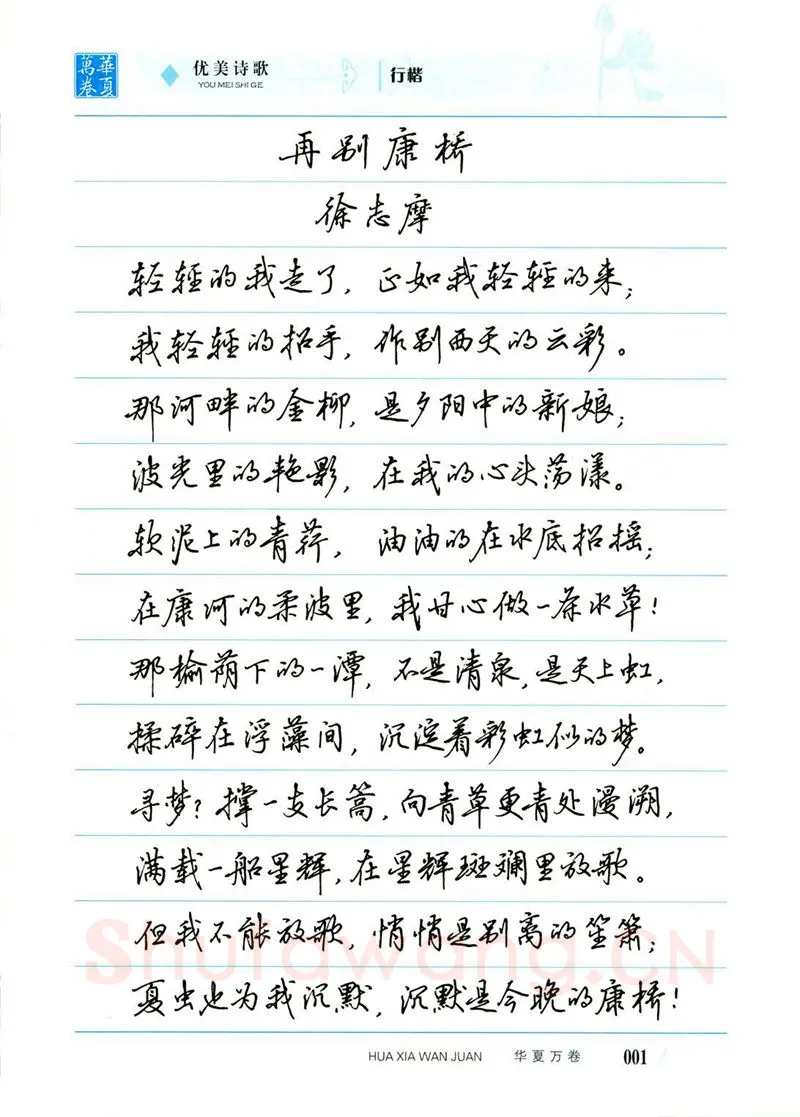 華夏
萬卷
优美诗歌
YOU MEI SHI GE
行楷
再别康桥
徐志摩
轻轻的我走了，正如我轻轻的来；
我轻轻的招手，作别西天的云彩。
那河畔的金柳，是夕阳中的新娘；
波光里的艳影，在我的心头荡漾。
软泥上的青荇，油油的在水底招摇；
在康河的柔波里，我甘心做一条水草！
那榆荫下的一潭，不是清泉，是天上虹，
揉碎在浮藻间，沉淀着彩虹似的梦。
寻梦？撑一支长篙，向青草更青处漫溯，
满载一船星辉，在星辉斑斓里放歌。
但我不能放歌，悄悄是别离的笙箫；
夏虫也为我沉默，沉默是今晚的康桥！
Shufawang.CN
HUA XIA WAN JUAN 华夏万卷 001